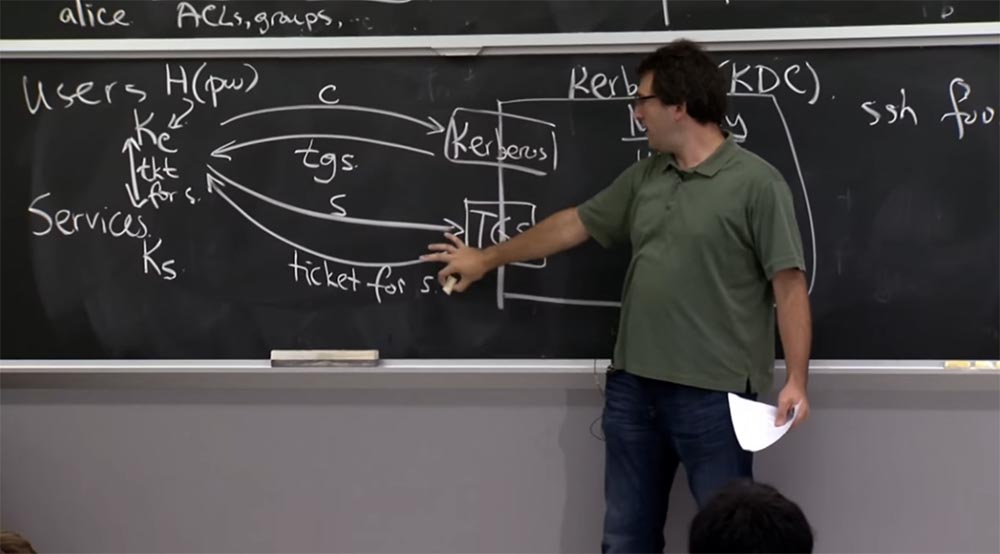 alice ACLs, groups, ...
Users H(pw)
Kc
tkt
for s.
Services
Ks.
c
tgs.
s
ticket for s.
Kerberos
TGS
(KDC).
ssh foo